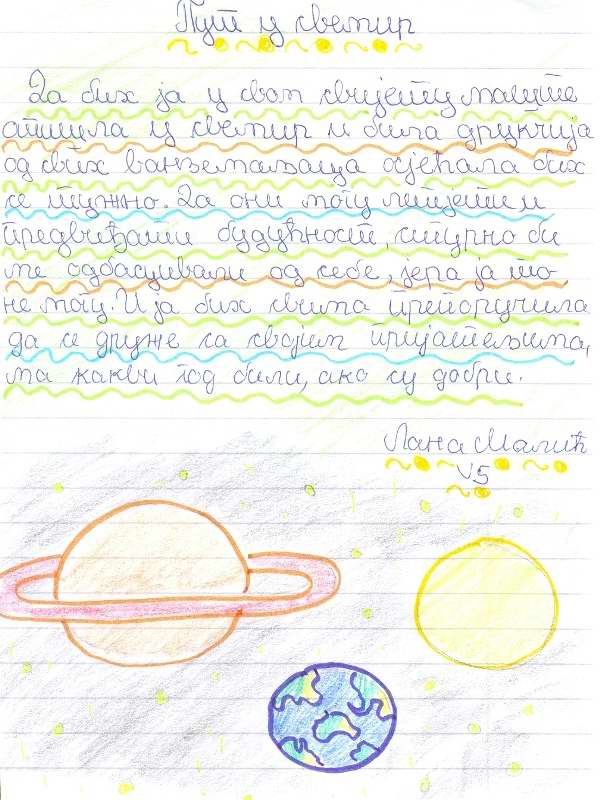 Пут у свемир
Да бих ја у свом свијету маште
отишла у свемир и била друкчија
од свих ванземаљаца осјећала бих
се тужно. Да они могу летјети и
предвиђати будућност, сигурно би
ме одбацивали од себе, јера ја то
не могу. И ја бих свима препоручила
да се друже са својим пријатељима,
ма какви год били, ако су добри.
Лана Малић
V5